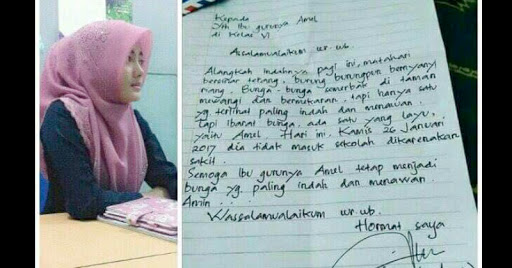 Kepada
Yth Ibu gurunya Amel
di Kelas VI
Assalamualaikum wr. wb.
Alangkah indahnya pagi ini, matahari
bersinar terang, burung burungpun bernyanyi
riang. Bunga-bunga semerbak di taman
mewangi dan bermekaran, tapi hanya satu
yg terlihat paling indah dan menawan.
Tapi ibarat bunga, ada satu yang layu,
yaitu Amel. Hari ini, Kamis 26 Januari
2017 dia tidak masuk sekolah dikarenakan
sakit.
Semoga Ibu gurunya Amel tetap menjadi
bunga yg. paling indah dan menawan
Amin . .
Wassalamualaikum wr. wb.
Hormat saya